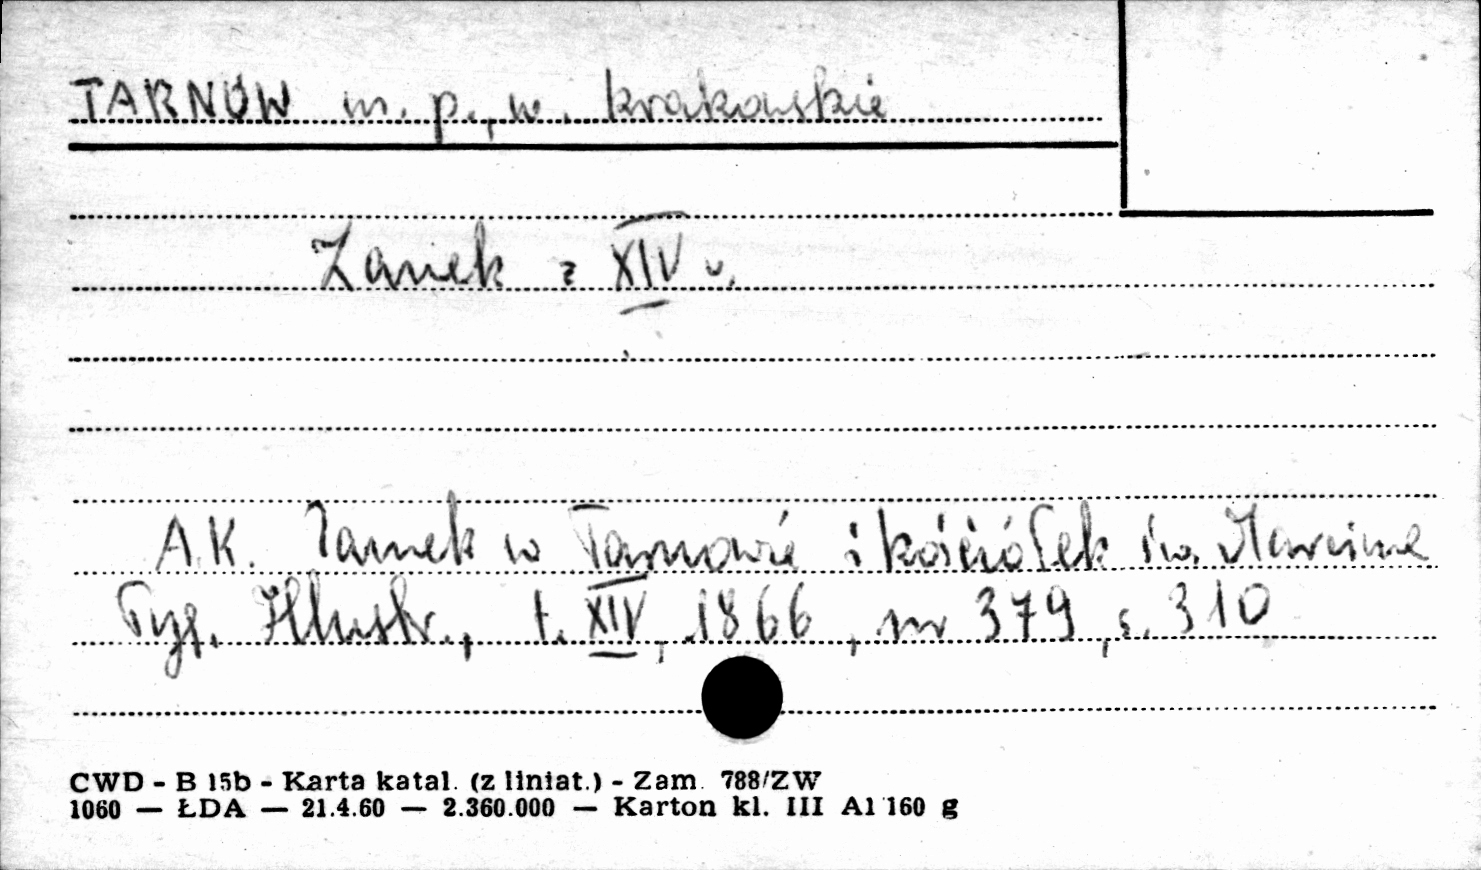 TARNÓW m. p., w. krakowskie
Zamek z XIV w.
A.K. Zamek w Tarnowie i kościółek św. Marcina
Tyg. Illustr., t. XIV, 1866, nr 379, s. 310
CWD - B 15b - Karta katal. (z liniat.) - Zam. 788/ZW
1060 — ŁDA — 21.4.60 — 2.360.000 — Karton kl. III A1 160 g